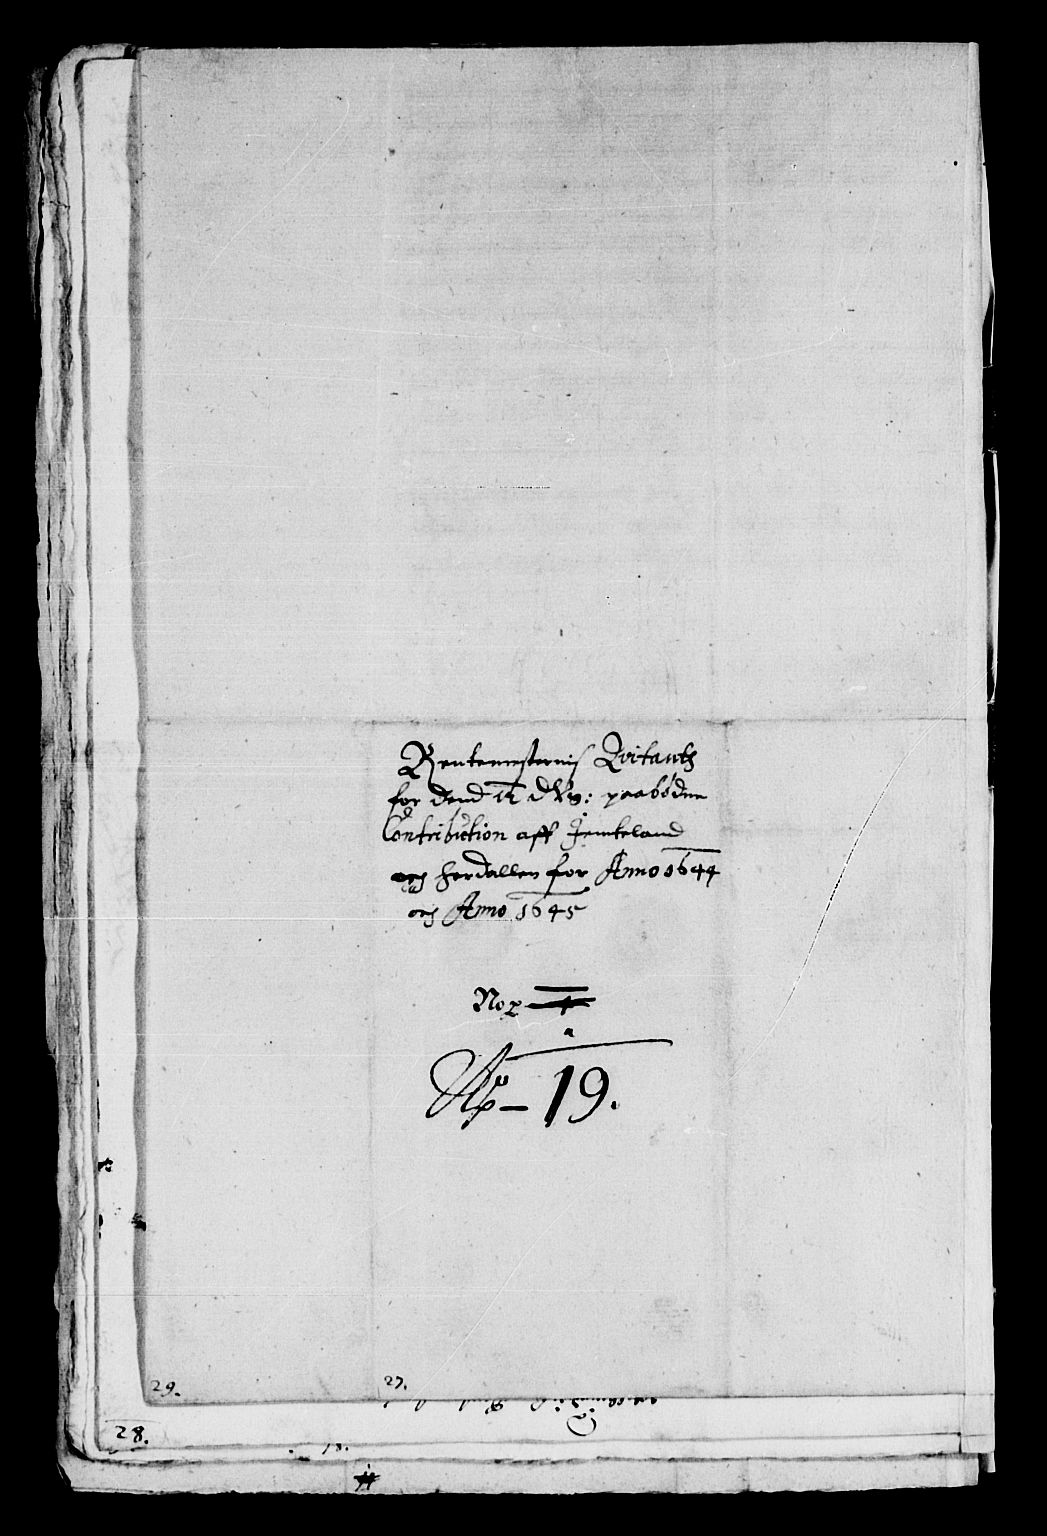 Rentemesternis Qvitantz
for dend 12 dlr: paabødne
Contribution aff Jemteland
och Herdallen for Anno 1644
och Anno 1645
No
No – 19.
29.
27.
28.
18.